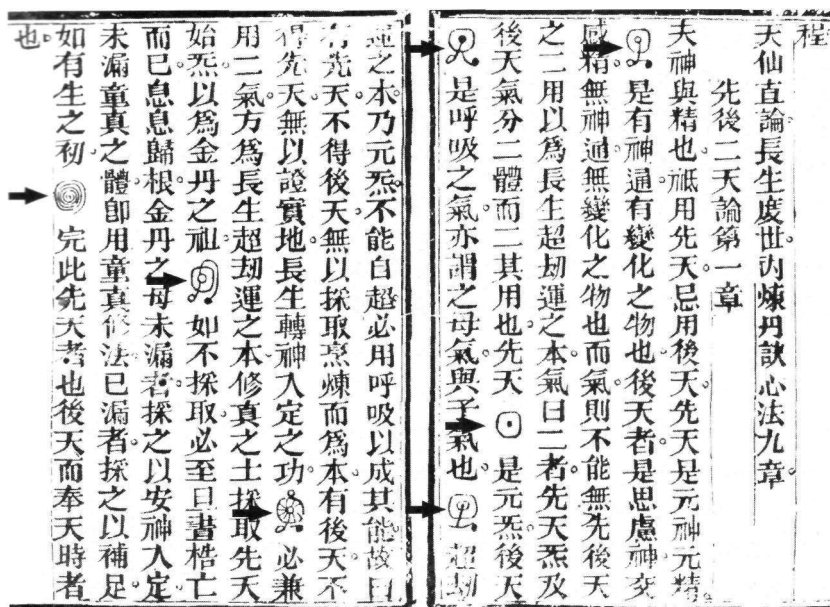 程
天仙直論長生度世內煉丹訣心法九章。
先後二天論第一章
夫神與精也祗用先天。忌用後天。先天是元神元精。
是有神通有變化之物也。後天者是思慮神交
感精無神通無變化之物也。而氣則不能無先後天
之二用以爲長生超劫運之本氣曰二者。先天炁及
後天氣。分二體而二其用也。先天 是元炁後天
是呼吸之氣。亦謂之母氣與子氣也。 超劫
運之本。乃元炁。不能自超。必用呼吸以成其能。故曰
有先天不得後天。無以採取烹煉而爲本。有後天不
得先天。無以證實地長生轉神入定之功。 必兼
用二氣方爲長生超劫運之本。修真之士採取先天
始炁。以爲金丹之祖。 如不採取。必至旦晝梏亡
而已。息息歸根金丹之母。未漏者。採之以安神入定。
未漏童真之體。卽用童真修法。已漏者。採之以補足。
如有生之初。 完此先天者也。後天而奉天時者
也。